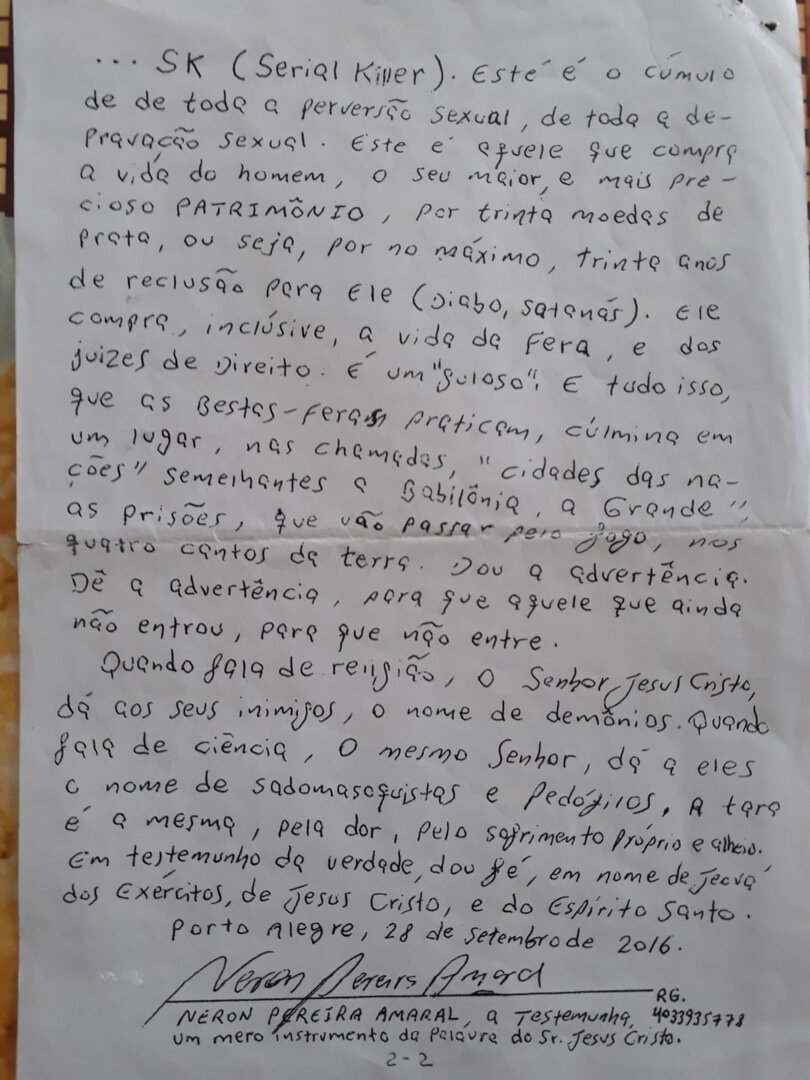 ... SK (Serial Killer). Este é o cúmulo
de de toda a perversão sexual, de toda a de-
pravação sexual. Este é aquele que compra
a vida do homem, o seu maior, e mais pre-
cioso PATRIMÔNIO, por trinta moedas de
prata, ou seja, por no máximo, trinta anos
de reclusão para Ele (Diabo, Satanás). Ele
compra, inclúsive, a vida da Fera, e dos
juizes de Direito. É um "guloso". E tudo isso,
que as Bestas-Feras praticam, cúlmina em
um lugar, nas chamadas, "cidades das na-
ções" semelhantes a Babilônia, a Grande",
as prisões, que vão passar pelo fogo, nos
quatro cantos da terra. Dou a advertência.
Dê a advertência, para que aquele que ainda
não entrou, para que não entre.
Quando fala de religião, o Senhor Jesus Cristo,
dá aos seus inimigos, o nome de demônios. Quando
fala de ciência, o mesmo Senhor, dá a eles
o nome de sadomasoquistas e pedófilos, A tara
é a mesma, pela dor, pelo sofrimento próprio e alheio.
Em testemunho da verdade, dou fé, em nome de Jeová
dos Exércitos, de Jesus Cristo, e do Espírito Santo.
Porto Alegre, 28 de Setembro de 2016.
Neron Pereira Amaral
RG.
NERON PEREIRA AMARAL, a Testemunha, 4033935778
um mero instrumento da Palavra do Sr. Jesus Cristo.
2-2